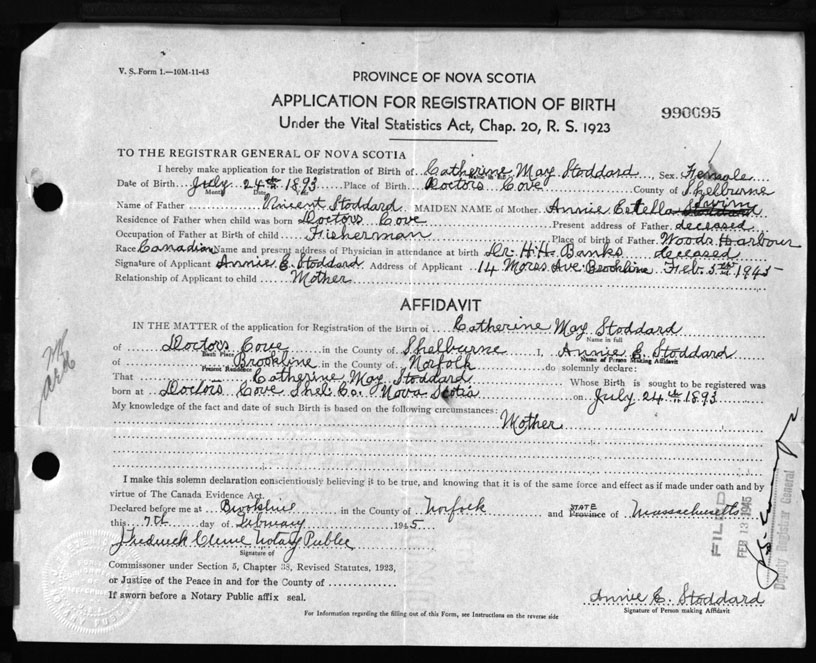 V. S. Form 1.—10M-11-43
PROVINCE OF NOVA SCOTIA
APPLICATION FOR REGISTRATION OF BIRTH
990695
Under the Vital Statistics Act, Chap. 20, R. S. 1923
TO THE REGISTRAR GENERAL OF NOVA SCOTIA
I hereby make application for the Registration of Birth of Catherine May Stoddard Sex Female
Date of Birth July 24th 1893 Place of Birth Doctors Cove County of Shelburne
Month Date
Irwin
Name of Father Vincent Stoddard MAIDEN NAME of Mother Annie Estella Stoddard
Residence of Father when child was born Doctors Cove Present address of Father deceased
Occupation of Father at Birth of child Fisherman Place of birth of Father Woods Harbour
Race Canadian Name and present address of Physician in attendance at birth Dr. H.H. Banks deceased
Signature of Applicant Annie E. Stoddard Address of Applicant 14 Morss Ave. Brookline Feb. 5th 1945
Relationship of Applicant to child Mother
AFFIDAVIT
IN THE MATTER of the application for Registration of the Birth of Catherine May Stoddard
Name in full
of Doctors Cove in the County of Shelburne I, Annie E. Stoddard
Birth Place Name of Person Making Affidavit
of Brookline in the County of Norfolk do solemnly declare:
Present Residence
That Catherine May Stoddard Whose Birth is sought to be registered was
born at Doctors Cove Shel. Co. Nova Scotia on July 24th 1893
My knowledge of the fact and date of such Birth is based on the following circumstances:
Mother
I make this solemn declaration conscientiously believing it to be true, and knowing that it is of the same force and effect as if made under oath and by
virtue of The Canada Evidence Act.
STATE
Declared before me at Brookline in the County of Norfolk and Province of Massachusetts
this 7th day of February 1945
Frederick Cleine Notary Public
Signature of
Commissioner under Section 5, Chapter 38, Revised Statutes, 1923,
or Justice of the Peace in and for the County of
If sworn before a Notary Public affix seal.
Annie E. Stoddard
Signature of Person making Affidavit
For Information regarding the filling out of this Form, see Instructions on the reverse side
FILED
FEB 13 1945
Deputy Registrar General